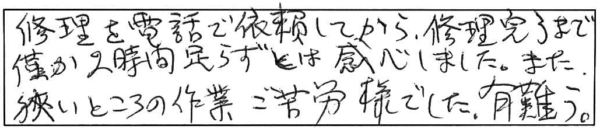 修理を電話で依頼してから、修理完了まで
僅か2時間足らずとは感心しました。また、
狭いところの作業ご苦労様でした。有難う。